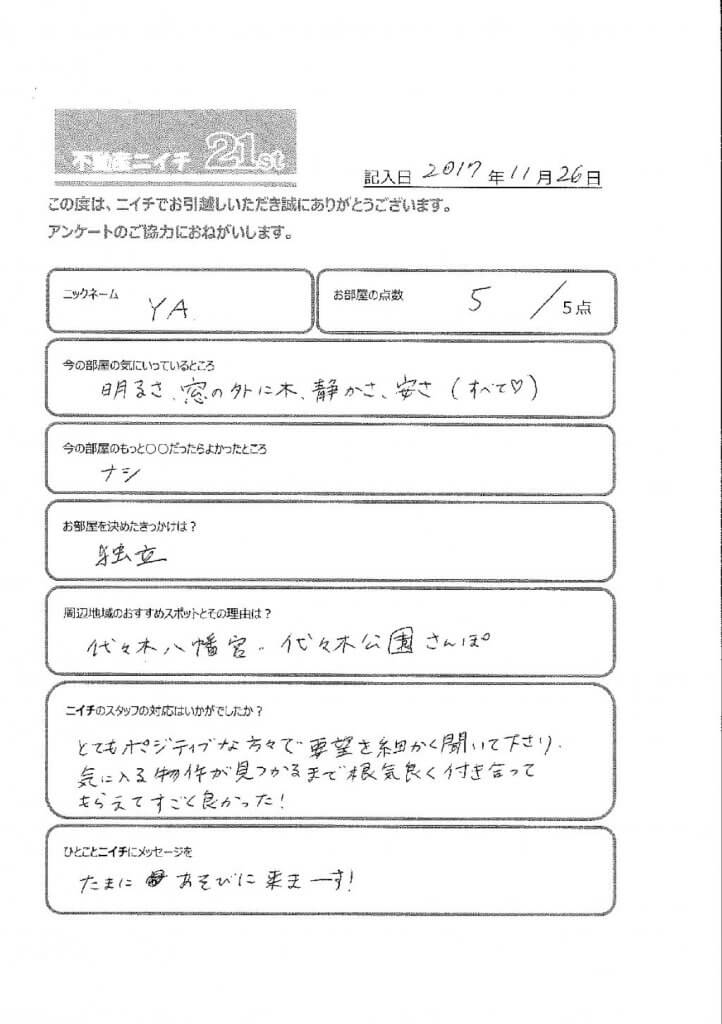 不動産ニイチ 21st
記入日 2017年11月26日
この度は、ニイチでお引越しいただき誠にありがとうございます。
アンケートのご協力におねがいします。
ニックネーム
YA
お部屋の点数
5/5点
今の部屋の気にいっているところ
明るさ、窓の外に木、静かさ、安さ(すべて♡)
今の部屋のもっと〇〇だったらよかったところ
ナシ
お部屋を決めたきっかけは?
独立
周辺地域のおすすめスポットとその理由は?
代々木八幡宮、代々木公園さんぽ
ニイチのスタッフの対応はいかがでしたか?
とてもポジティブな方々で要望を細かく聞いて下さり、
気に入る物件が見つかるまで根気良く付き合って
もらえてすごく良かった!
ひとことニイチにメッセージを
たまに あそびに来まーす!